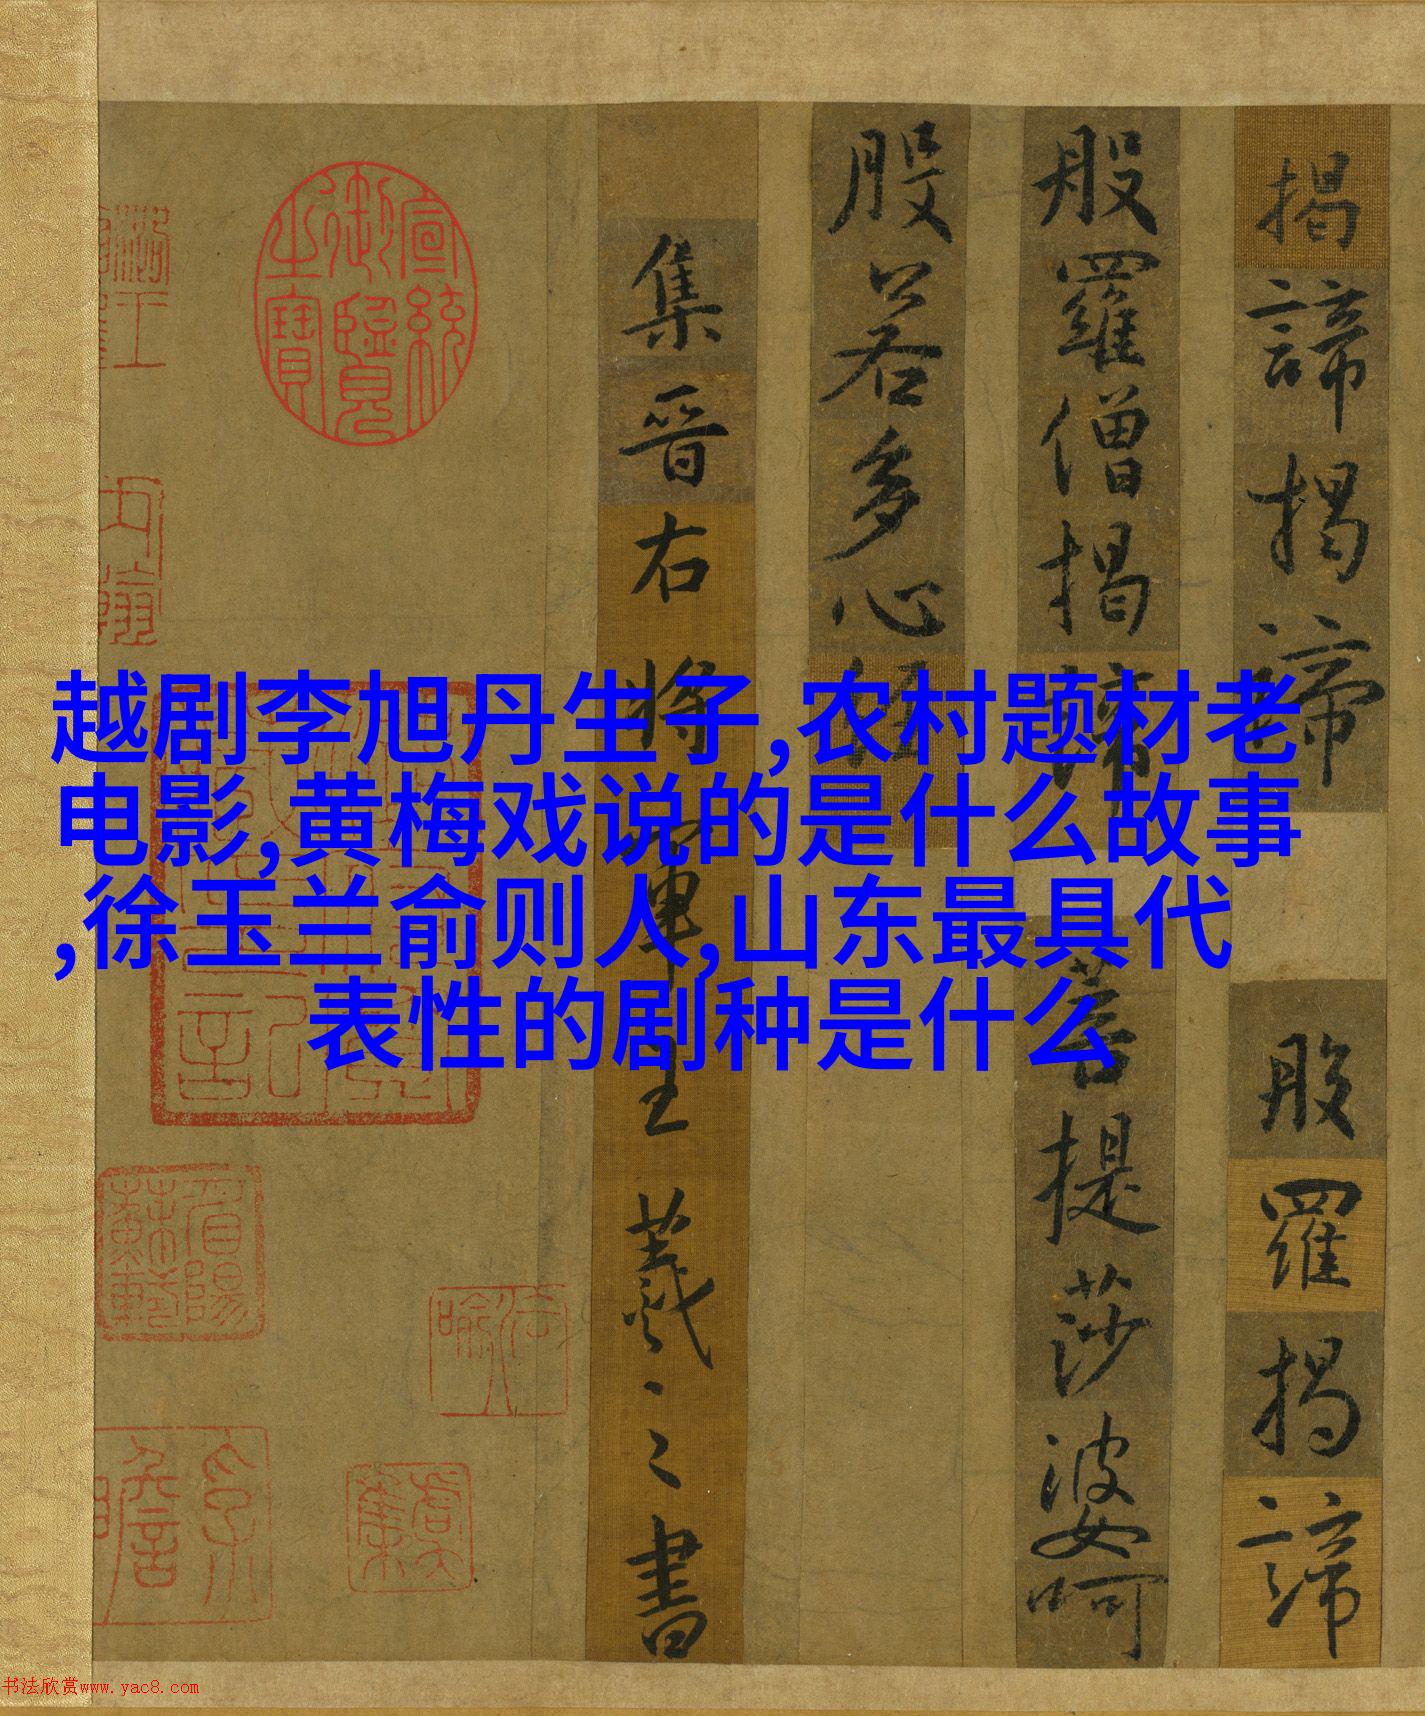 揭諦揭諦
般羅揭諦
般羅僧揭諦
菩提莎婆呵
般若多心經
集晉右將軍王羲之書
宣統御覽之寶
眉陽蘇軾
越剧李旭丹生子,农村题材老
电影,黄梅戏说的是什么故事
,徐玉兰俞则人,山东最具代
表性的剧种是什么
书法欣赏www.yac8.com